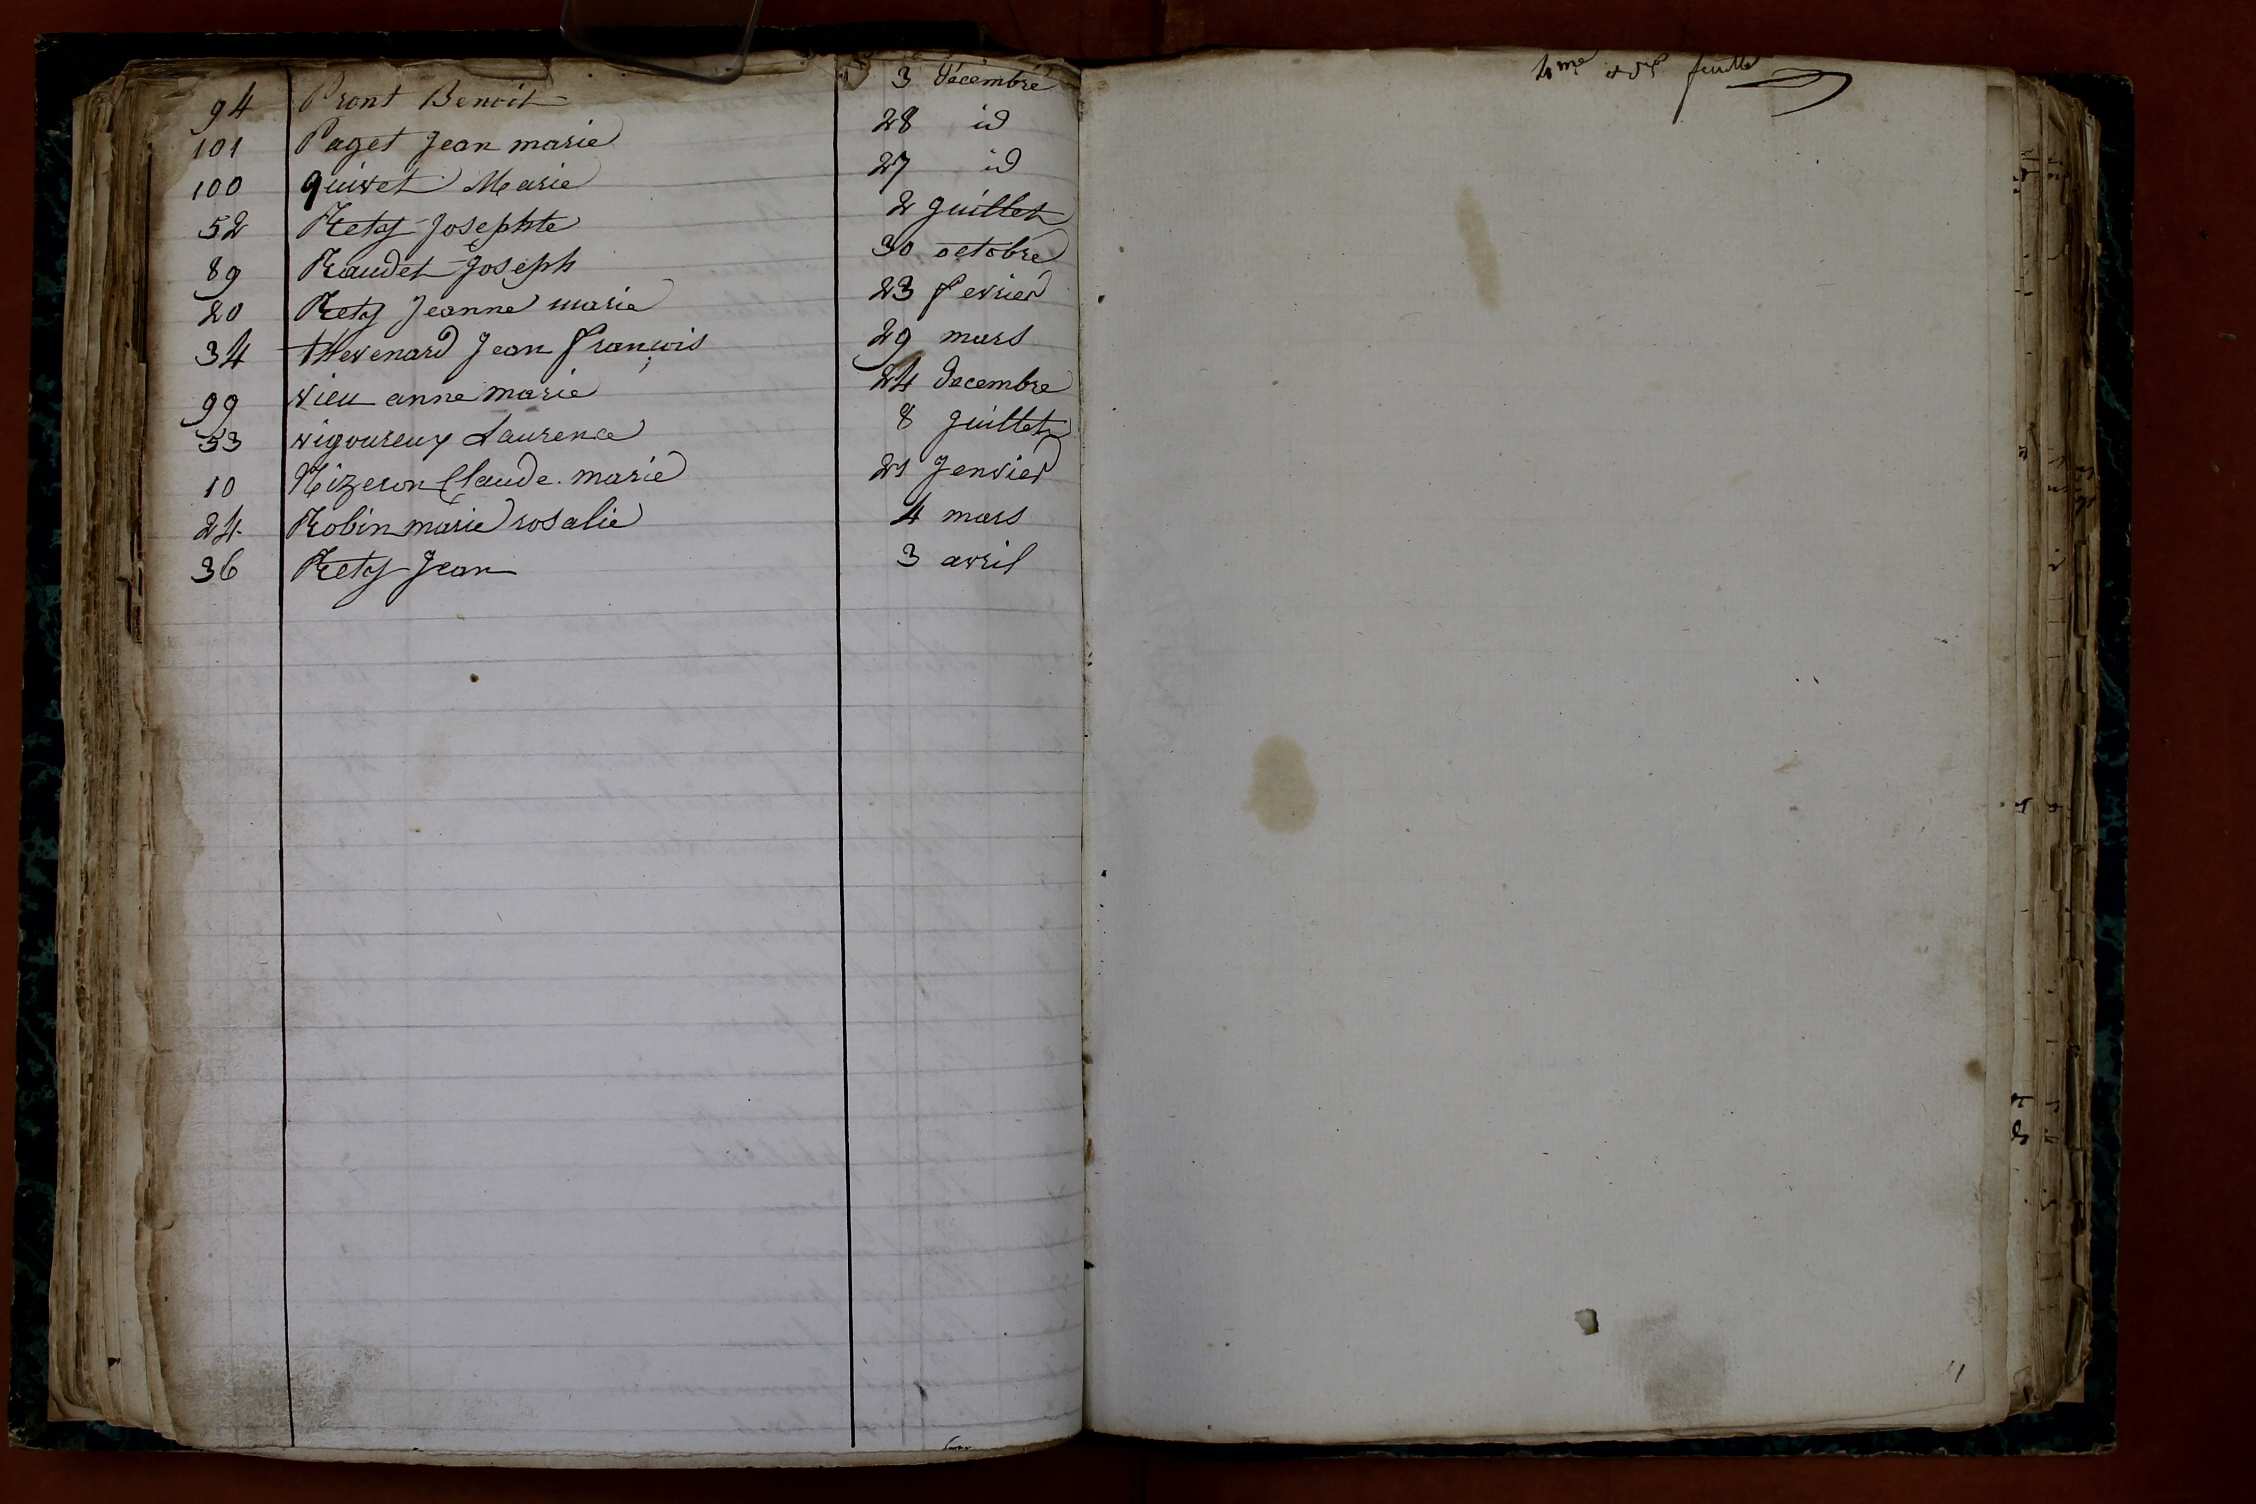 94 Pront Benoit 3 décembre
101 Paget Jean marie 28 id
100 quivet Marie 27 id
52 Rety Josephte 2 Juillet
89 Raudet Joseph 30 octobre
20 Rety Jeanne marie 23 fevrier
34 thevenard Jean françois 29 mars
99 vieu anne marie 24 decembre
53 vigoureux Laurence 8 Juillet
10 Rizeron Claude marie 21 Jenvier
24 Robin marie rosalie 4 mars
36 Rety Jean 3 avril
4me et 5e feuille